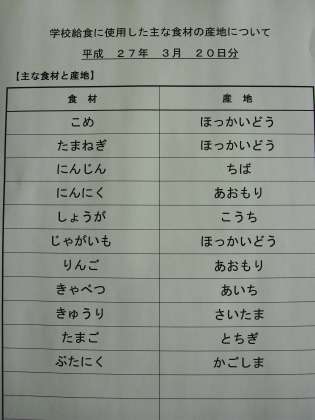 学校給食に使用した主な食材の産地について
平成 27年 3月 20日分
【主な食材と産地】
食 材 産 地
こめ ほっかいどう
たまねぎ ほっかいどう
にんじん ちば
にんにく あおもり
しょうが こうち
じゃがいも ほっかいどう
りんご あおもり
きゃべつ あいち
きゅうり さいたま
たまご とちぎ
ぶたにく かごしま